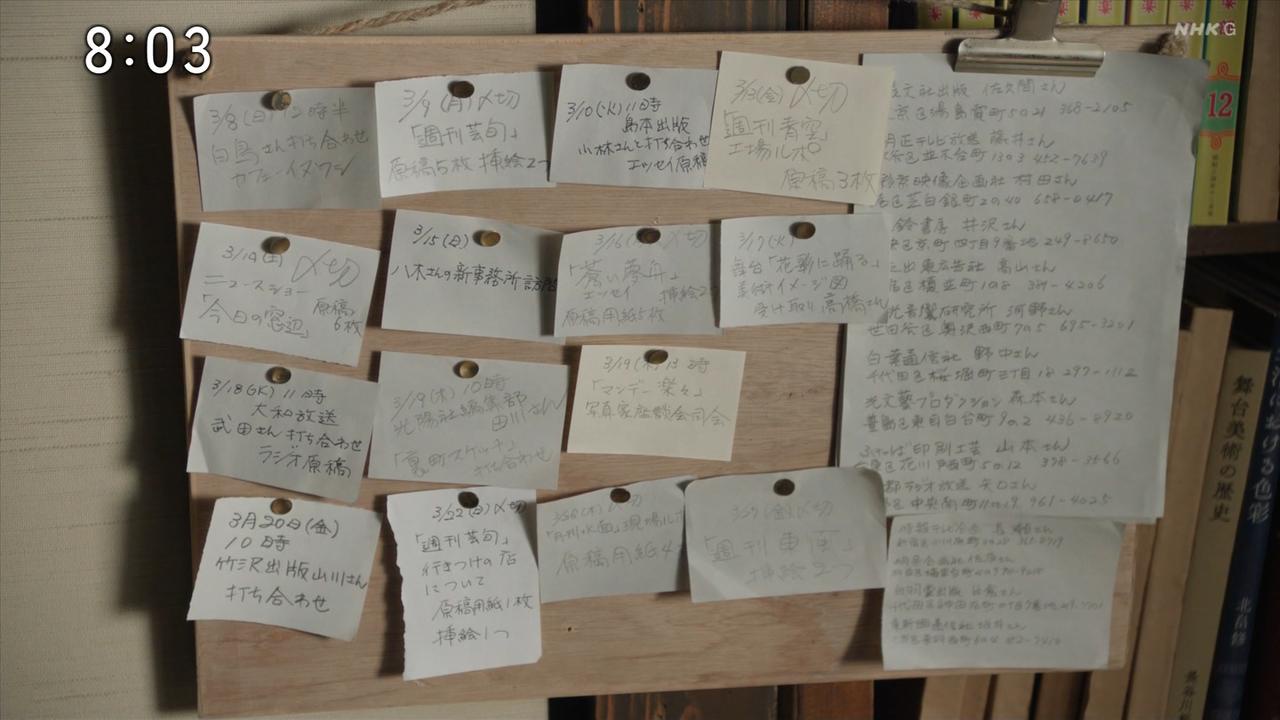 8:03
NHK G
3/8(日)12時半
白鳥さん打ち合わせ
カフェーイヌワシ
3/9(月)〆切
「週刊芸旬」
原稿5枚 挿絵2つ
3/10(火)11時
島本出版
小林さんと打ち合わせ
エッセイ原稿
3/13(金)〆切
「週刊青空」
工場ルポ
原稿3枚
3/14(土)〆切
ニュースショー
「今日の窓辺」
原稿
6枚
3/15(日)
八木さんの新事務所訪問
3/16(月)〆切
「蒼い夢舟」
エッセイ 挿絵2つ
原稿用紙5枚
3/17(火)
舞台「花影に踊る」
美術イメージ図
受け取り 高橋さん
3/18(水)11時
大和放送
武田さん打ち合わせ
ラジオ原稿
3/19(木)10時
光陽社編集部
田川さん
「裏町スケッチ」
打ち合わせ
3/19(木)13時
「マンデー楽々」
写真家座談会司会
3月20日(金)
10時
竹沢出版山川さん
打ち合わせ
3/22(日)〆切
「週刊芸旬」
行きつけの店
について
原稿用紙1枚
挿絵1つ
3/26(木)〆切
原稿用紙4
(金)〆切
「週刊東画」
挿絵2つ
文社出版 佐久間さん
京区湯島賀町5の21 368-2105
月正テレビ放送 藤井さん
谷区並木台町1303 452-7639
京映像企画社 村田さん
区芝白銀町2の40 658-0417
鈴書房 井沢さん
区京町四丁目9番地 249-8650
東広告社 高山さん
区榎並町108 391-4206
光音響研究所 河野さん
世田谷区奥沢西町7の5 695-3201
白葉通信社 野中さん
千代田区桜堀町三丁目18 297-1112
光文藝プロダクション 森本さん
豊島区東目白台町9の2 436-8920
ふたば印刷工芸 山本さん
区花川戸西町50.12 398-3566
都ラジオ放送 矢口さん
区中央南町11の19 961-4025
12
舞台美術の歴史
における色彩
北畠修
長谷川